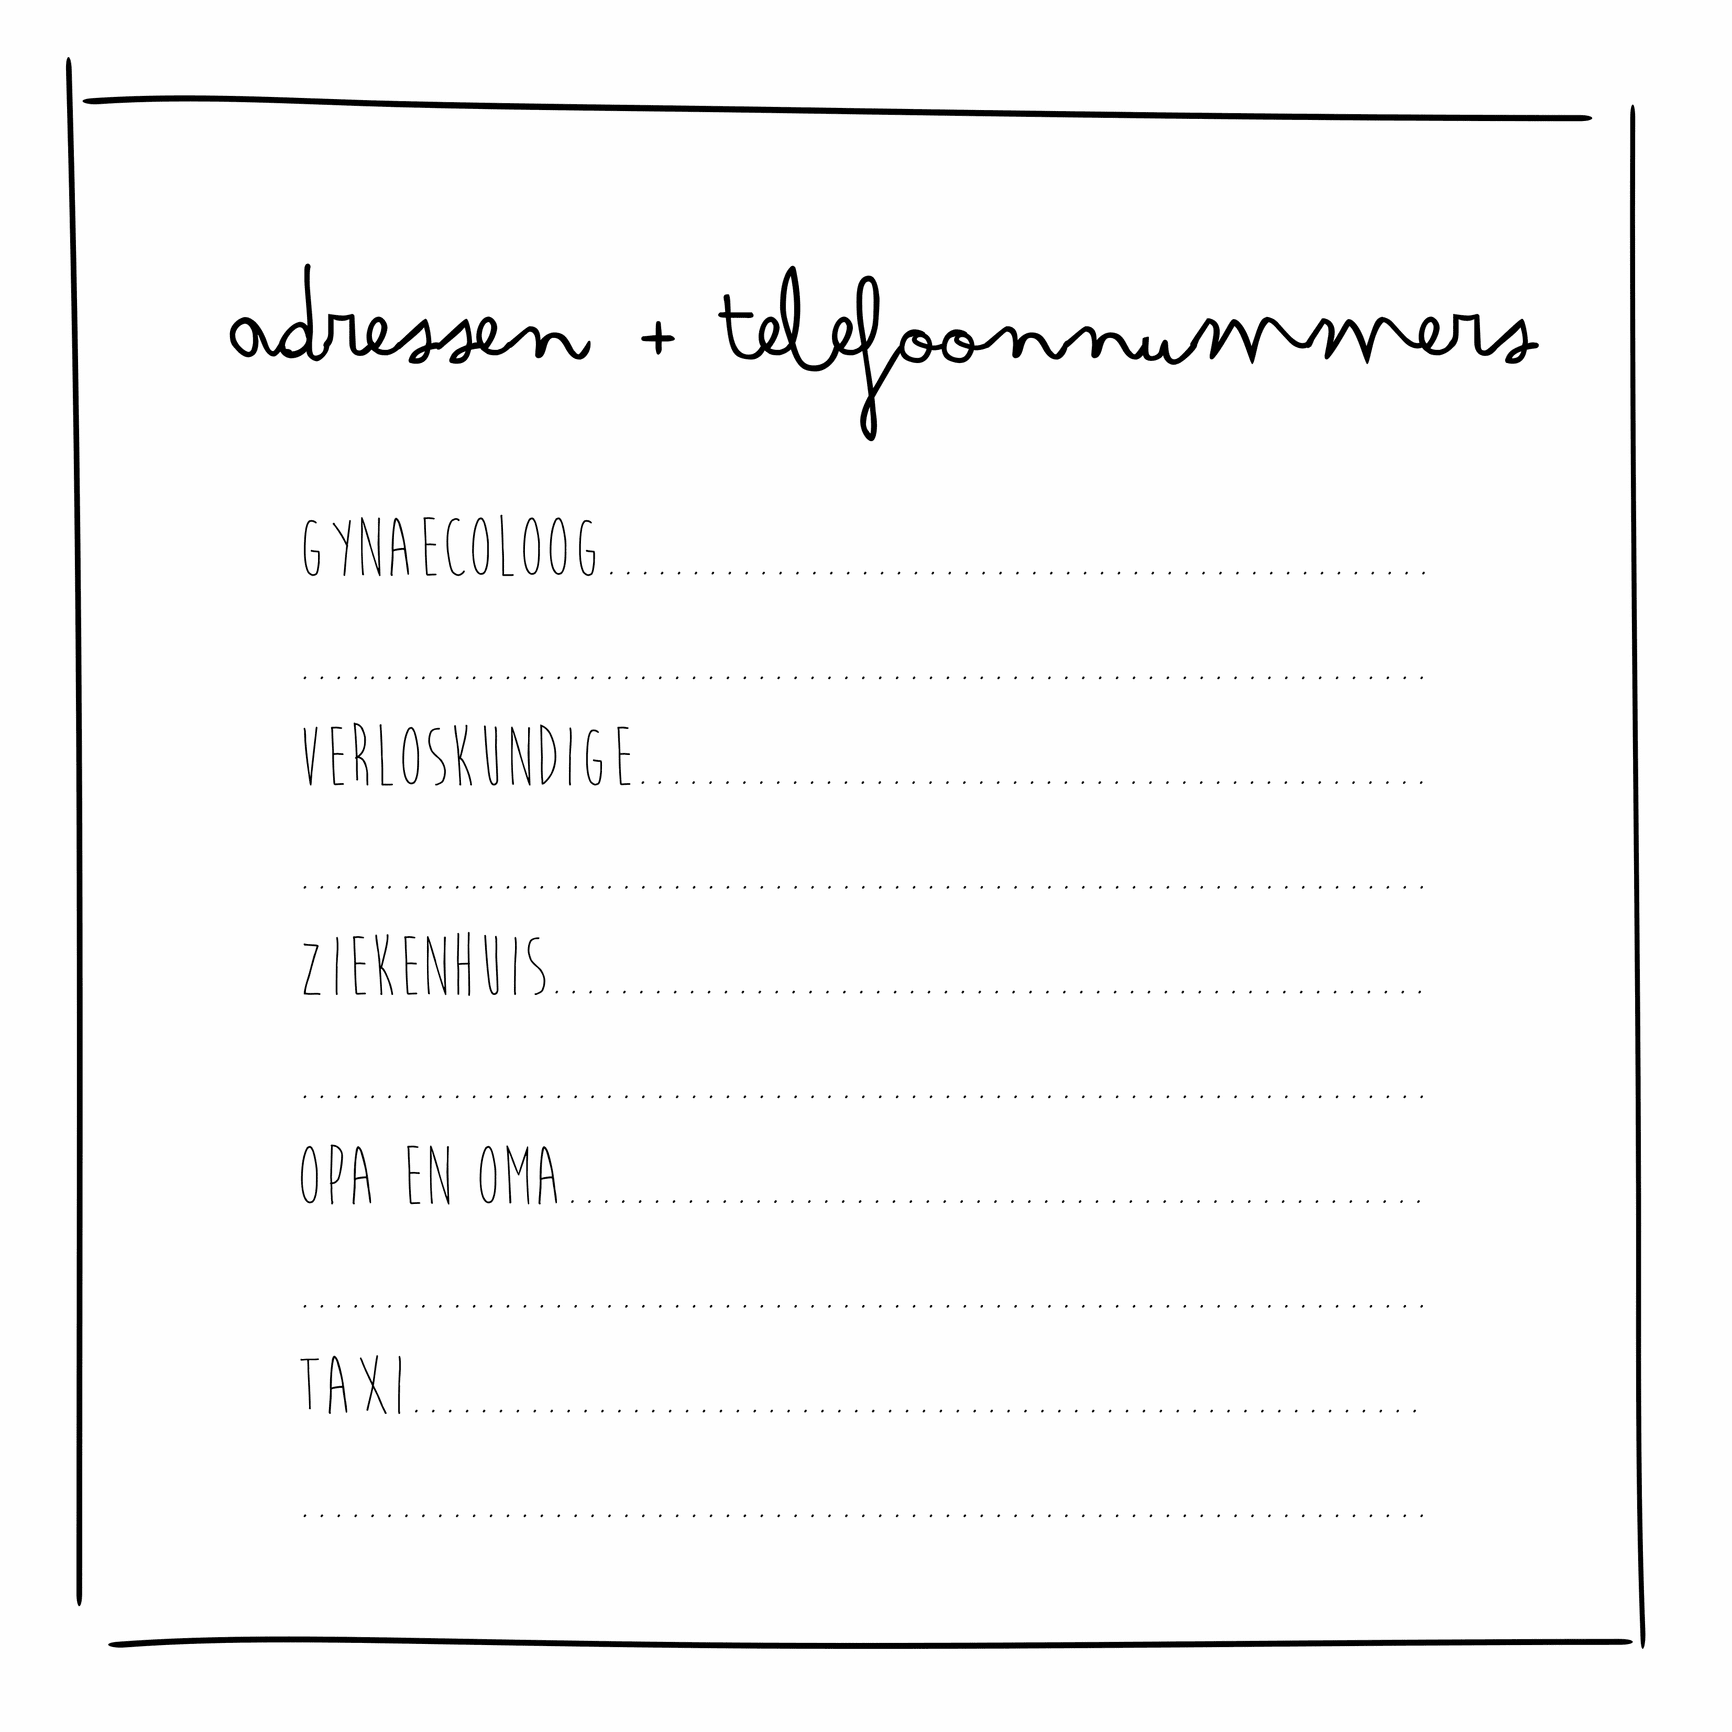 adressen + telefoonnummers
GYNAECOLOOG
VERLOSKUNDIGE
ZIEKENHUIS
OPA EN OMA
TAXI